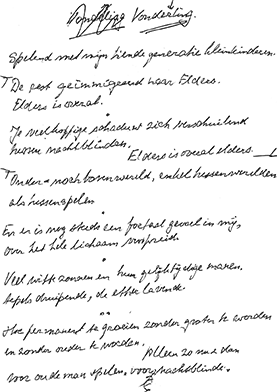 Vondeling.
Spelend met mijn tiende generatie kleinkinderen.
De rest geëmmigreerd naar Elders.
Elders is overal.
Je verhoffige schaduwt zich verschuilend
tussen nachtblinden,
Elders is overal elders.
Onder- noch bovenwereld, enkel tussenwerelden
als tussenspelen
En er is nog steeds een foetaal gevoel in mij,
over het hele lichaam verspreid.
Veel witte zonnen en hun gelijktijdige manen.
tepels druipende, de etter lavende.
Hoe permanent te groeien zonder groter te worden
en zonder ouder te worden.
Alleen zo nu en dan
voor oude man spelen, voor nachtblinde.